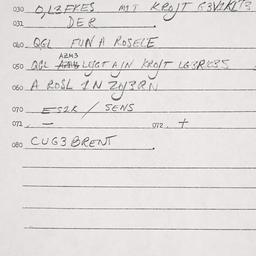 030 0,12FKES MIT KROJT G3V1KLT3
031 DER
040 QGL FUNA ROSELE
AZM3
050 QGL LUGTAJN KROJT LG3RKS5
060 A ROSL 1N ZNJ3RN
070 ES2R / SENS
071 - 072 +
080 CUG3BRENT